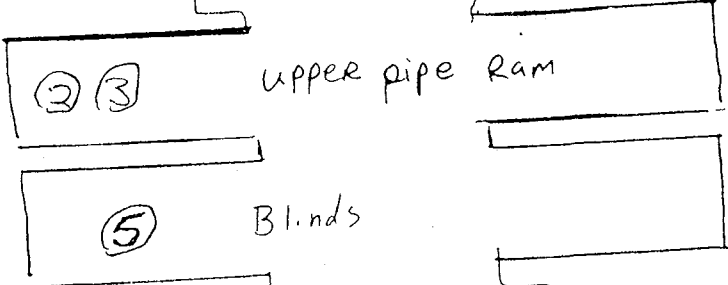 ② ③ upper pipe Ram
⑤ Blinds